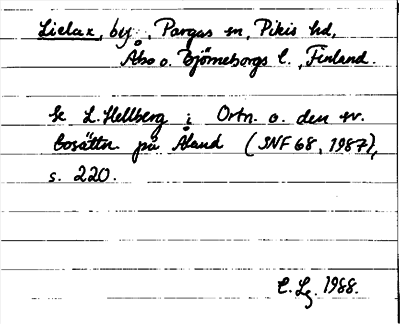 Lielax, by, Pargas sn, Pikis hd,
Åbo o. Björneborgs l., Finland.
Se L. Hellberg i Ortn. o. den sv.
bosättn. på Åland (SNF 68, 1987),
s. 220.
C. Lg. 1988.